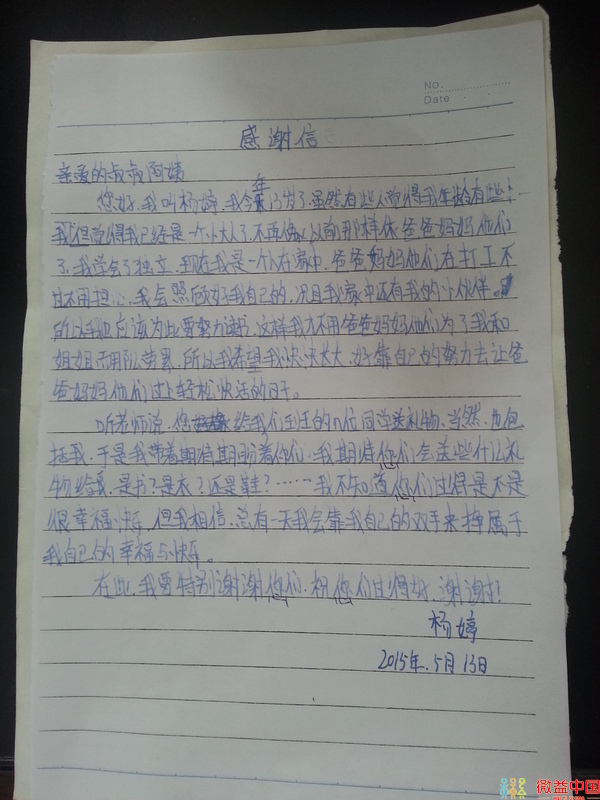 No.
Date
感谢信
亲爱的叔叔阿姨
您好,我叫杨婷,我今年13岁了,虽然有些人觉得我年龄有些小
我但觉得我已经是一个小大人了,不再像以前那样依爸爸妈妈他们
了,我学会了独立,现在我是一个人在家中,爸爸妈妈他们在打工,不
过不用担心,我会照顾好我自己的,况且我家中还有我的小伙伴。
所以我也应该为此要努力读书,这样我才不用爸爸妈妈他们为了我和
姐姐而劳累,所以我希望我快快长大,好靠自己的努力去让爸
爸妈妈他们过上轻松快活的日子。
听老师说,您给我们班的n位同学送礼物,当然,也包
括我,于是我带着期待期盼着你们,我期待您们会送些什么礼
物给我,是书?是衣?还是鞋?……我不知道您们过得是不是
很幸福快乐,但我相信,总有一天我会靠我自己的双手来挣属于
我自己的幸福与快乐。
在此,我要特别谢谢您们,祝您们过得好,谢谢!
杨婷
2015年.5月13日
微益中国